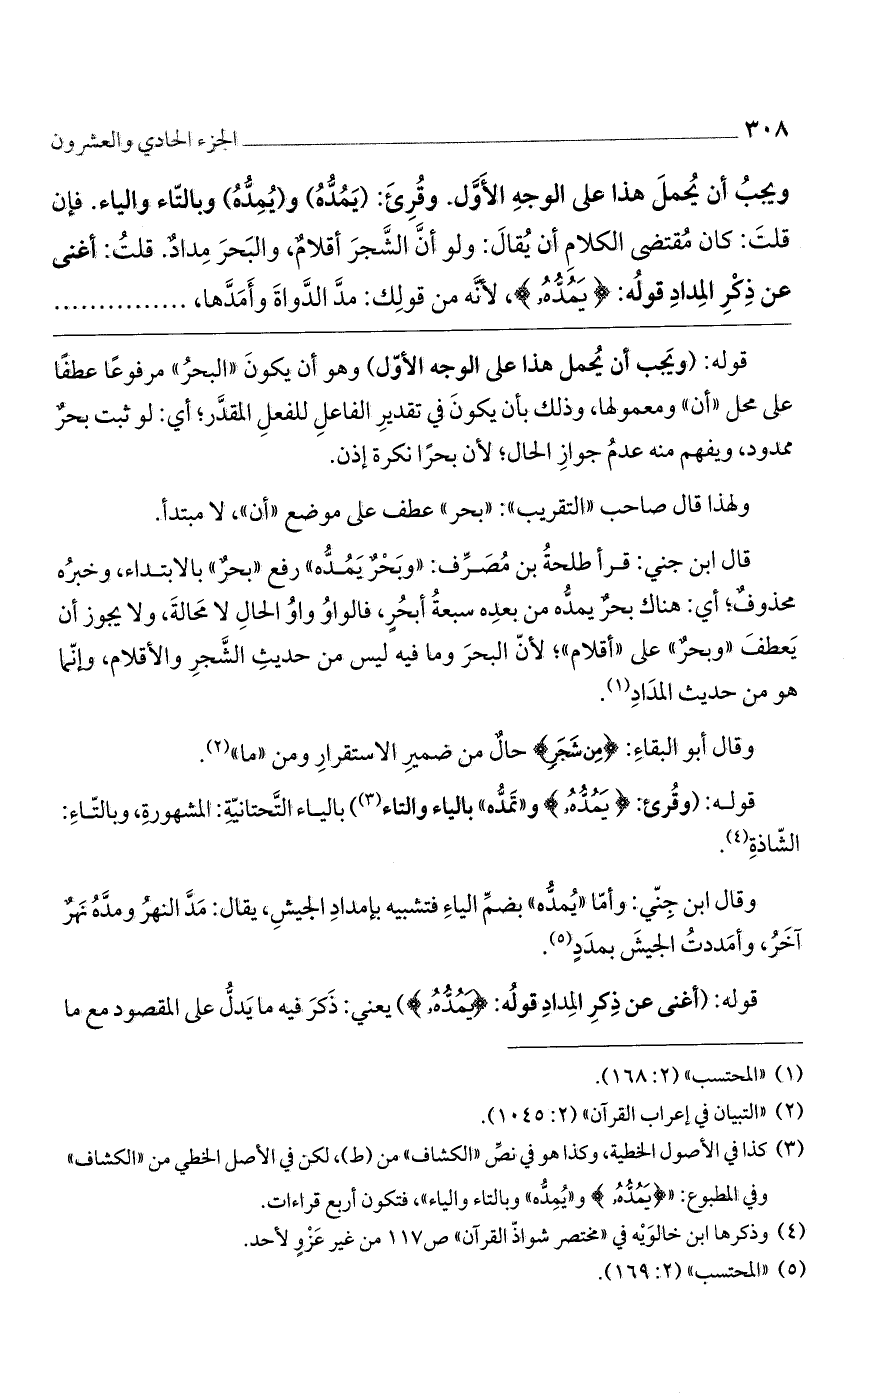 ٣٠٨ الجزء الحادي والعشرون
ويجبُ أن يُحملَ هذا على الوجهِ الأَوَّل. وقُرِئَ: (يَمُدُّهُ) و(يُمِدُّهُ) وبالتّاء والياء. فإن
قلتَ: كان مُقتضى الكلام أن يُقالَ: ولو أنَّ الشَّجرَ أقلامٌ، والبَحرَ مِدادٌ. قلتُ: أغنى
عن ذِكْرِ المِدادِ قولُه: ﴿يَمُدُّهُۥ﴾، لأنَّه من قولِك: مدَّ الدَّواةَ وأَمَدَّها، ...............
قوله: (ويَجب أن يُحمل هذا على الوجه الأوّل) وهو أن يكونَ «البحرُ» مرفوعًا عطفًا
على محل «أن» ومعمولها، وذلك بأن يكونَ في تقديرِ الفاعلِ للفعلِ المقدَّر؛ أي: لو ثبت بحرٌ
ممدود، ويفهم منه عدمُ جوازِ الحال؛ لأن بحرًا نكرة إذن.
ولهذا قال صاحب «التقريب»: «بحر» عطف على موضع «أن»، لا مبتدأ.
قال ابن جني: قرأ طلحةُ بن مُصَرِّف: «وبَحْرٌ يَمُدُّه» رفع «بحرٌ» بالابتداء، وخبرُه
محذوفٌ؛ أي: هناك بحرٌ يمدُّه من بعدِه سبعةُ أبحُرٍ، فالواوُ واوُ الحال لا مَحالةَ، ولا يجوز أن
يَعطفَ «وبحرٌ» على «أقلام»؛ لأنّ البحرَ وما فيه ليس من حديثِ الشَّجرِ والأقلام، وإنّما
هو من حديث المدَادِ(١).
وقال أبو البقاءِ: ﴿مِن شَجَرٍ﴾ حالٌ من ضميرِ الاستقرارِ ومن «ما»(٢).
قوله: (وقُرئ: ﴿يَمُدُّهُۥ﴾ و«تَمدُّه» بالياء والتاء(٣)) بالياء التَّحتانيّةِ: المشهورةِ، وبالتّاءِ:
الشّاذةِ(٤).
وقال ابن جِنّي: وأمّا «يُمدُّه» بضمِّ الياءِ فتشبيه بإمدادِ الجيشِ، يقال: مَدَّ النهرُ ومدَّهُ نَهرٌ
آخَرُ، وأمَددتُ الجيشَ بمدَدٍ(٥).
قوله: (أغنى عن ذِكرِ المِدادِ قولُه: ﴿يَمُدُّهُۥ﴾) يعني: ذَكرَ فيه ما يَدلُّ على المقصود مع ما
(١) «المحتسب» (٢: ١٦٨).
(٢) «التبيان في إعراب القرآن» (٢: ١٠٤٥).
(٣) كذا في الأصول الخطية، وكذا هو في نصِّ «الكشاف» من (ط)، لكن في الأصل الخطي من «الكشاف»
وفي المطبوع: «﴿يَمُدُّهُۥ﴾ و«يُمِدُّه» وبالتاء والياء»، فتكون أربع قراءات.
(٤) وذكرها ابن خالوَيْه في «مختصر شواذّ القرآن» ص١١٧ من غير عَزْوٍ لأحد.
(٥) «المحتسب» (٢: ١٦٩).